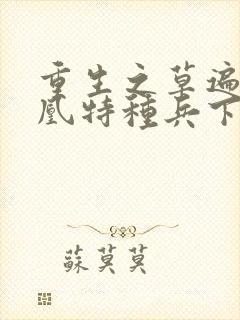 重生之草遍
凰特種兵下
蘇莫莫